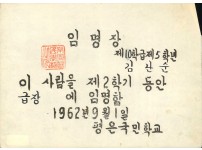 임명장
제10학급제5학년
김산순
이 사람을 제2학기 동안
급장에 임명함
1962년9월1일
평은국민학교